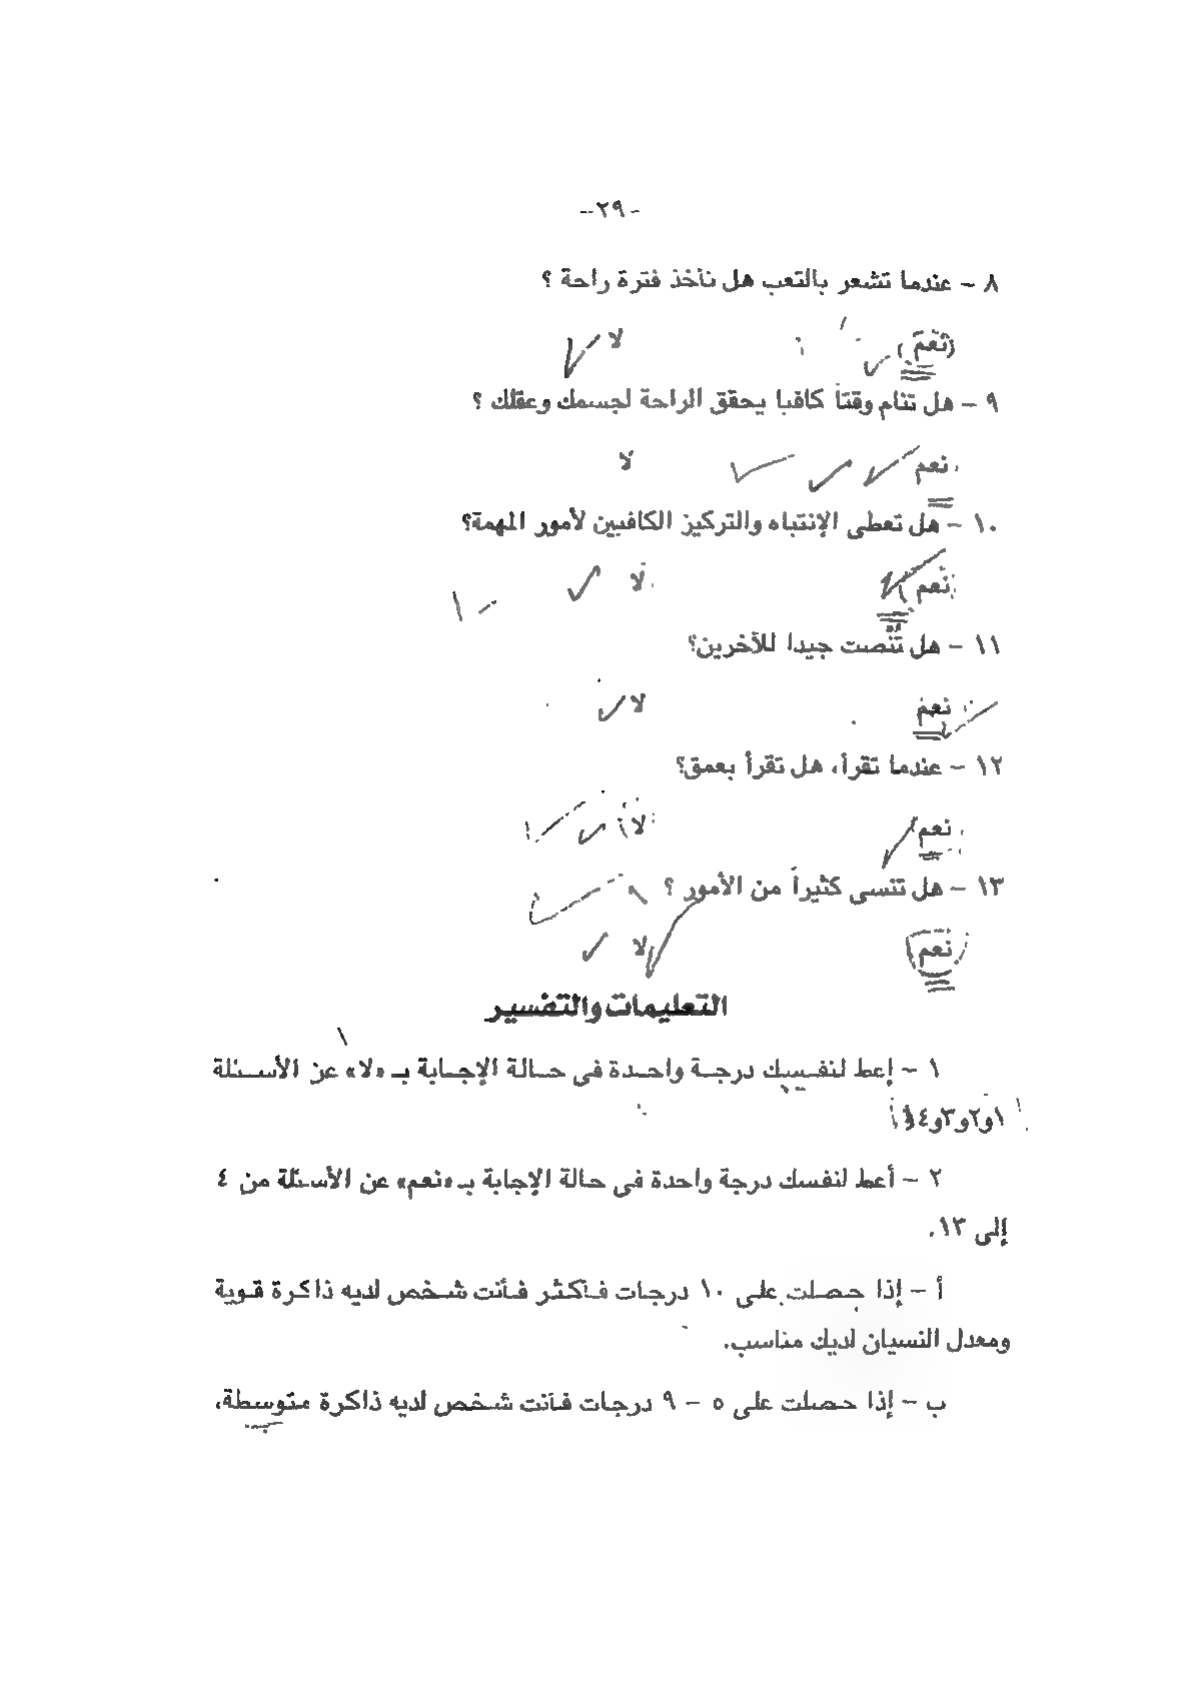 -٢٩-
٨ - عندما تشعر بالتعب هل تأخذ فترة راحة ؟
(نعم) لا
٩ - هل تنام وقتاً كافيا يحقق الراحة لجسمك وعقلك ؟
نعم لا
١٠ - هل تعطى الإنتباه والتركيز الكافيين لأمور المهمة؟
نعم لا
١١ - هل تنصت جيدا للآخرين؟
نعم لا
١٢ - عندما تقرأ، هل تقرأ بعمق؟
نعم لا
١٣ - هل تنسى كثيراً من الأمور ؟
نعم لا
التعليمات والتفسير
١ - إعط لنفسك درجة واحدة فى حالة الإجابة بـ «لا» عن الأسئلة
١و٢و٣و٤
٢ - أعط لنفسك درجة واحدة فى حالة الإجابة بـ «نعم» عن الأسئلة من ٤
إلى ١٣.
أ - إذا حصلت على ١٠ درجات فأكثر فأنت شخص لديه ذاكرة قوية
ومعدل النسيان لديك مناسب.
ب - إذا حصلت على ٥ - ٩ درجات فأنت شخص لديه ذاكرة متوسطة،